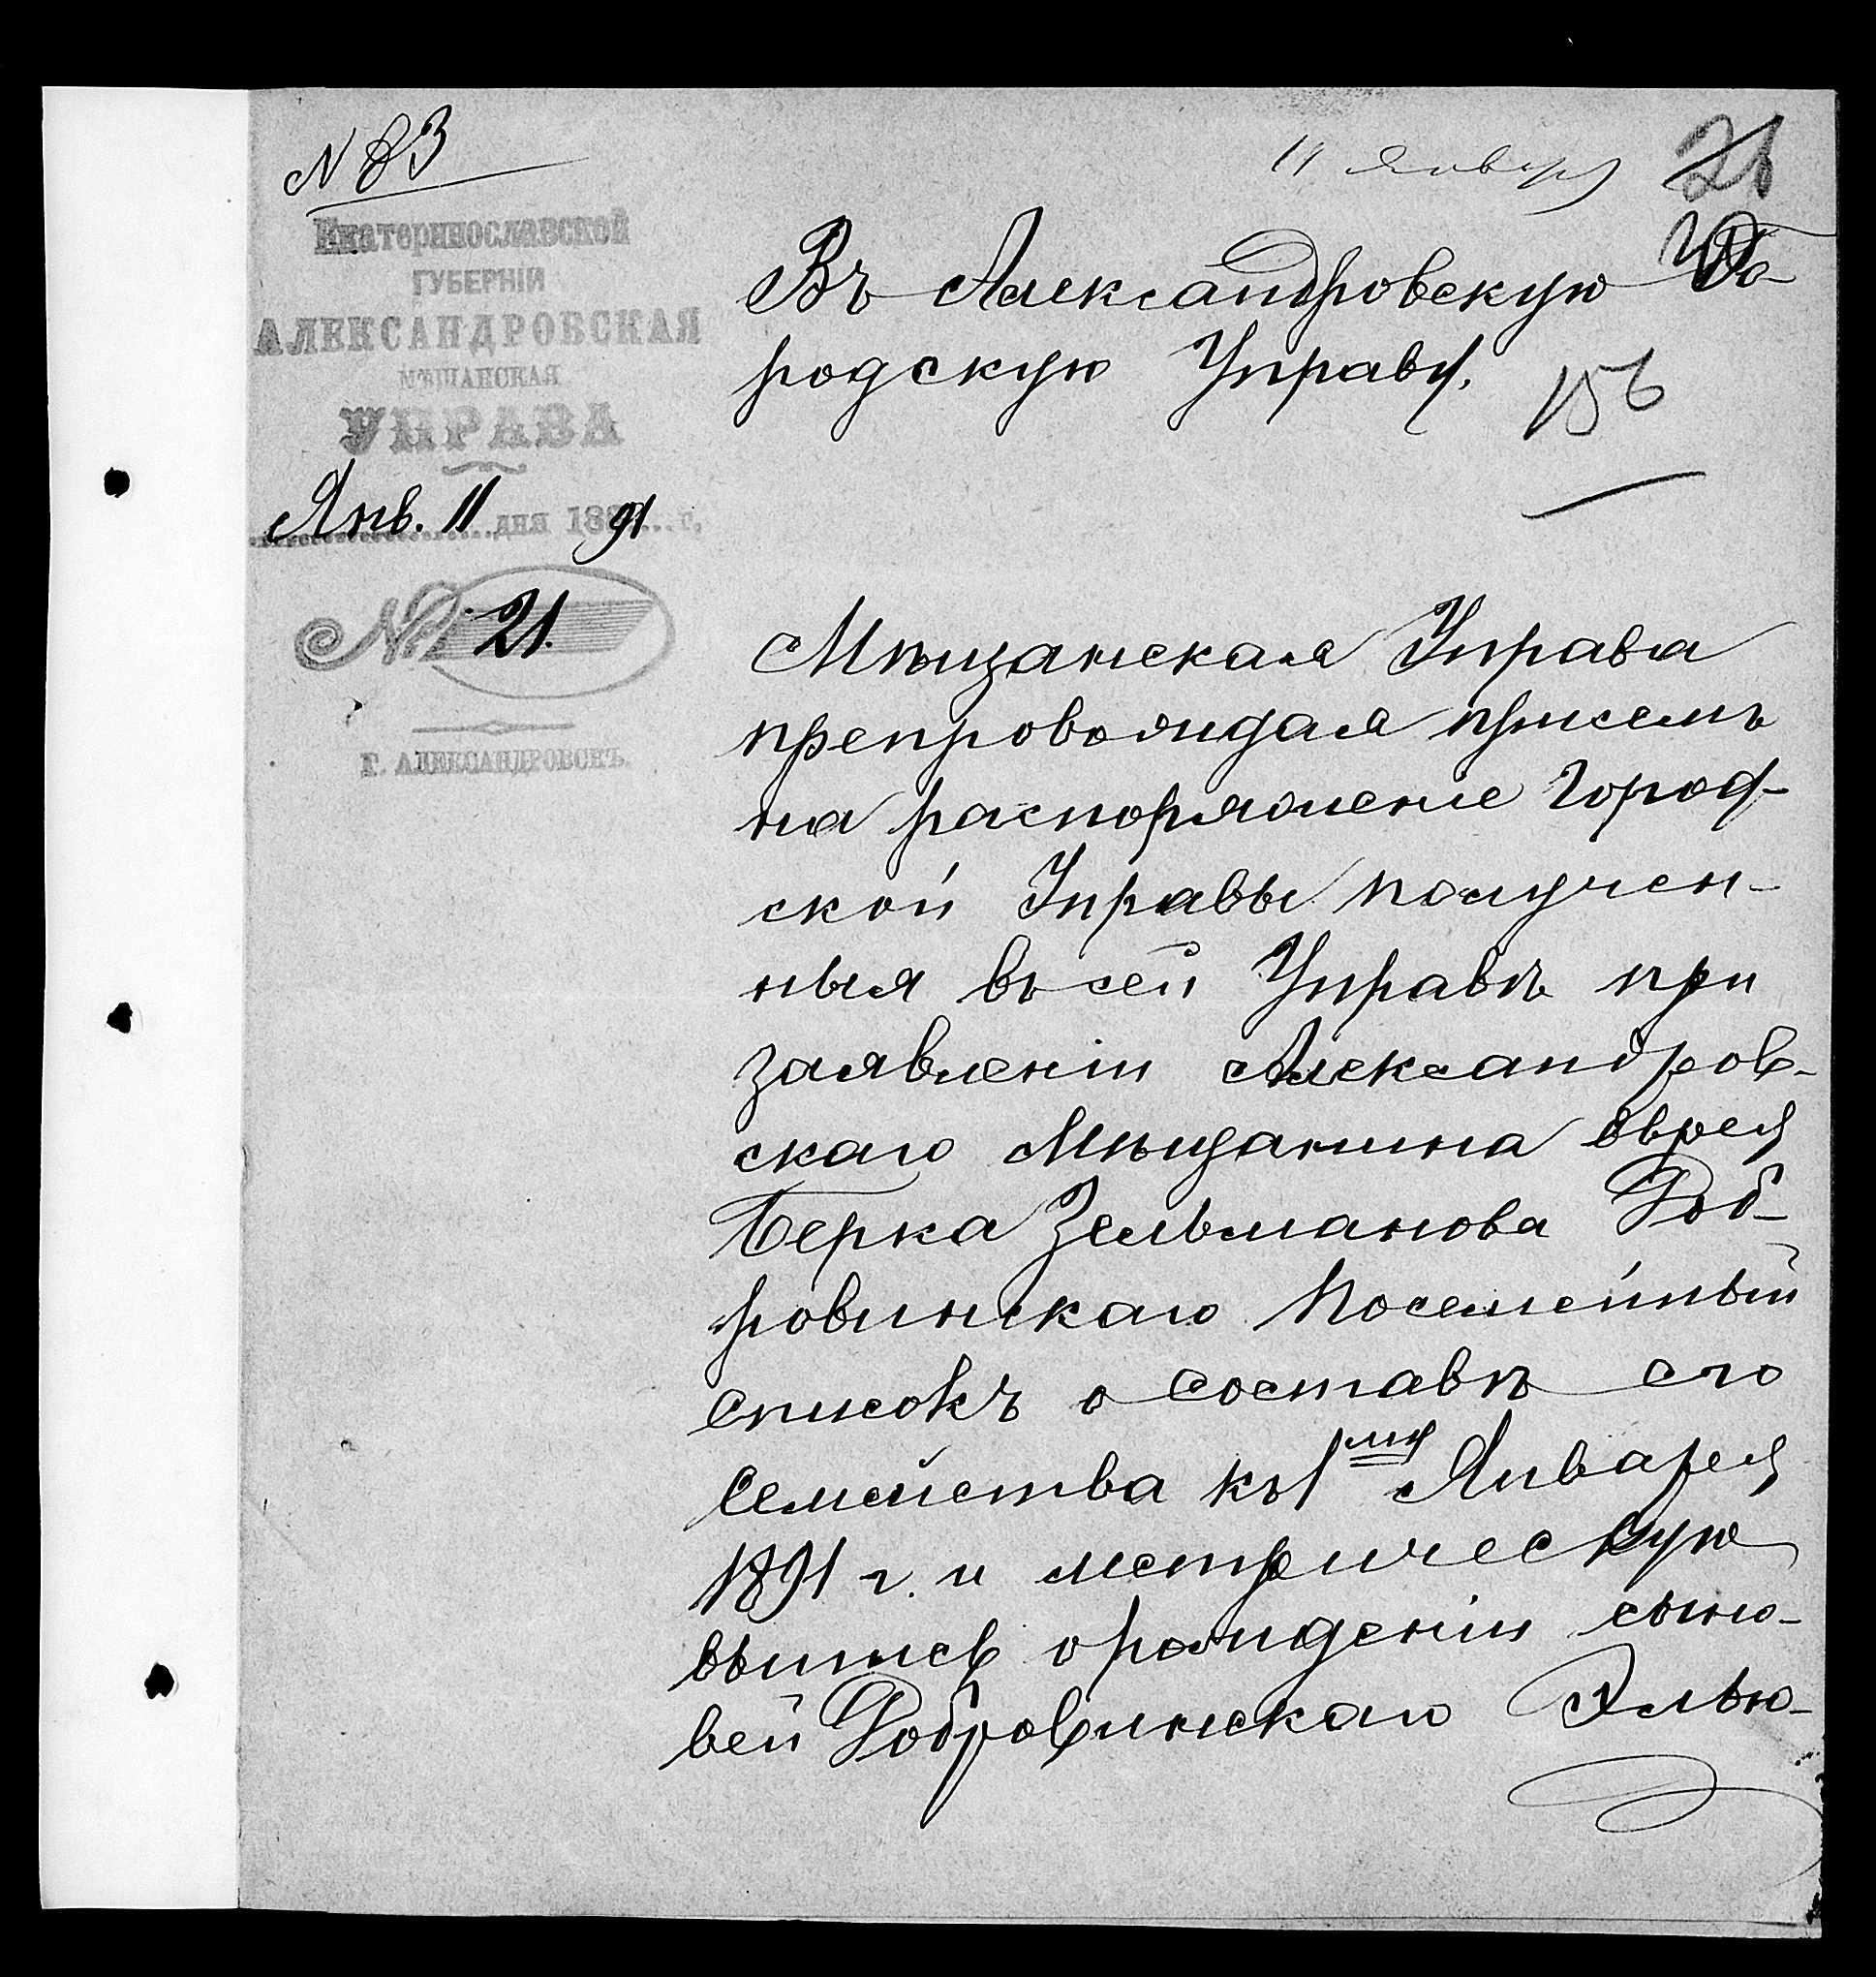 N 83
11 Января
21
Екатеринославской
ГУБЕРНІИ
АЛЕКСАНДРОВСКАЯ
МѢЩАНСКАЯ
УПРАВА
Янв. 11 дня 1891 г.
№ 21.
Г. АЛЕКСАНДРОВСКЪ.
Въ Александровскую Го-
родскую Управу.
156
Мѣщанская Управа
препровождая присемъ
на распоряженіе Город-
ской Управы получен-
ныя въ сей Управѣ при
заявленіи Александров-
скаго Мѣщанина еврея
Берка Зельманова Доб-
ровинскаго Посемейный
списокъ о составѣ его
семейства къ 1му Января
1891 г. и метрическую
выпись о рожденіи сыно-
вей Добровинскаго Элью-